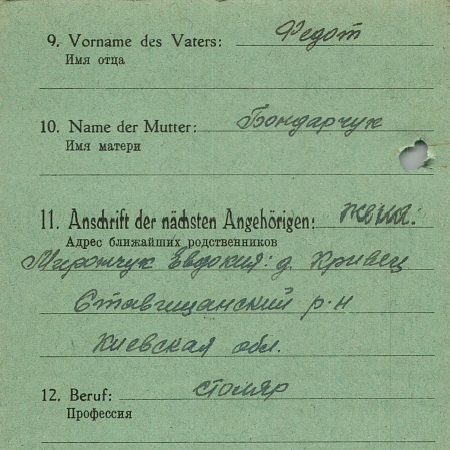 9. Vorname des Vaters: Федот
Имя отца
10. Name der Mutter: Бондарчук
Имя матери
11. Anschrift der nächsten Angehörigen: жена:
Адрес ближайших родственников
Мирончук Евдокия: д. Кривец
Ставищанский р-н
Киевская обл.
12. Beruf: столяр
Профессия